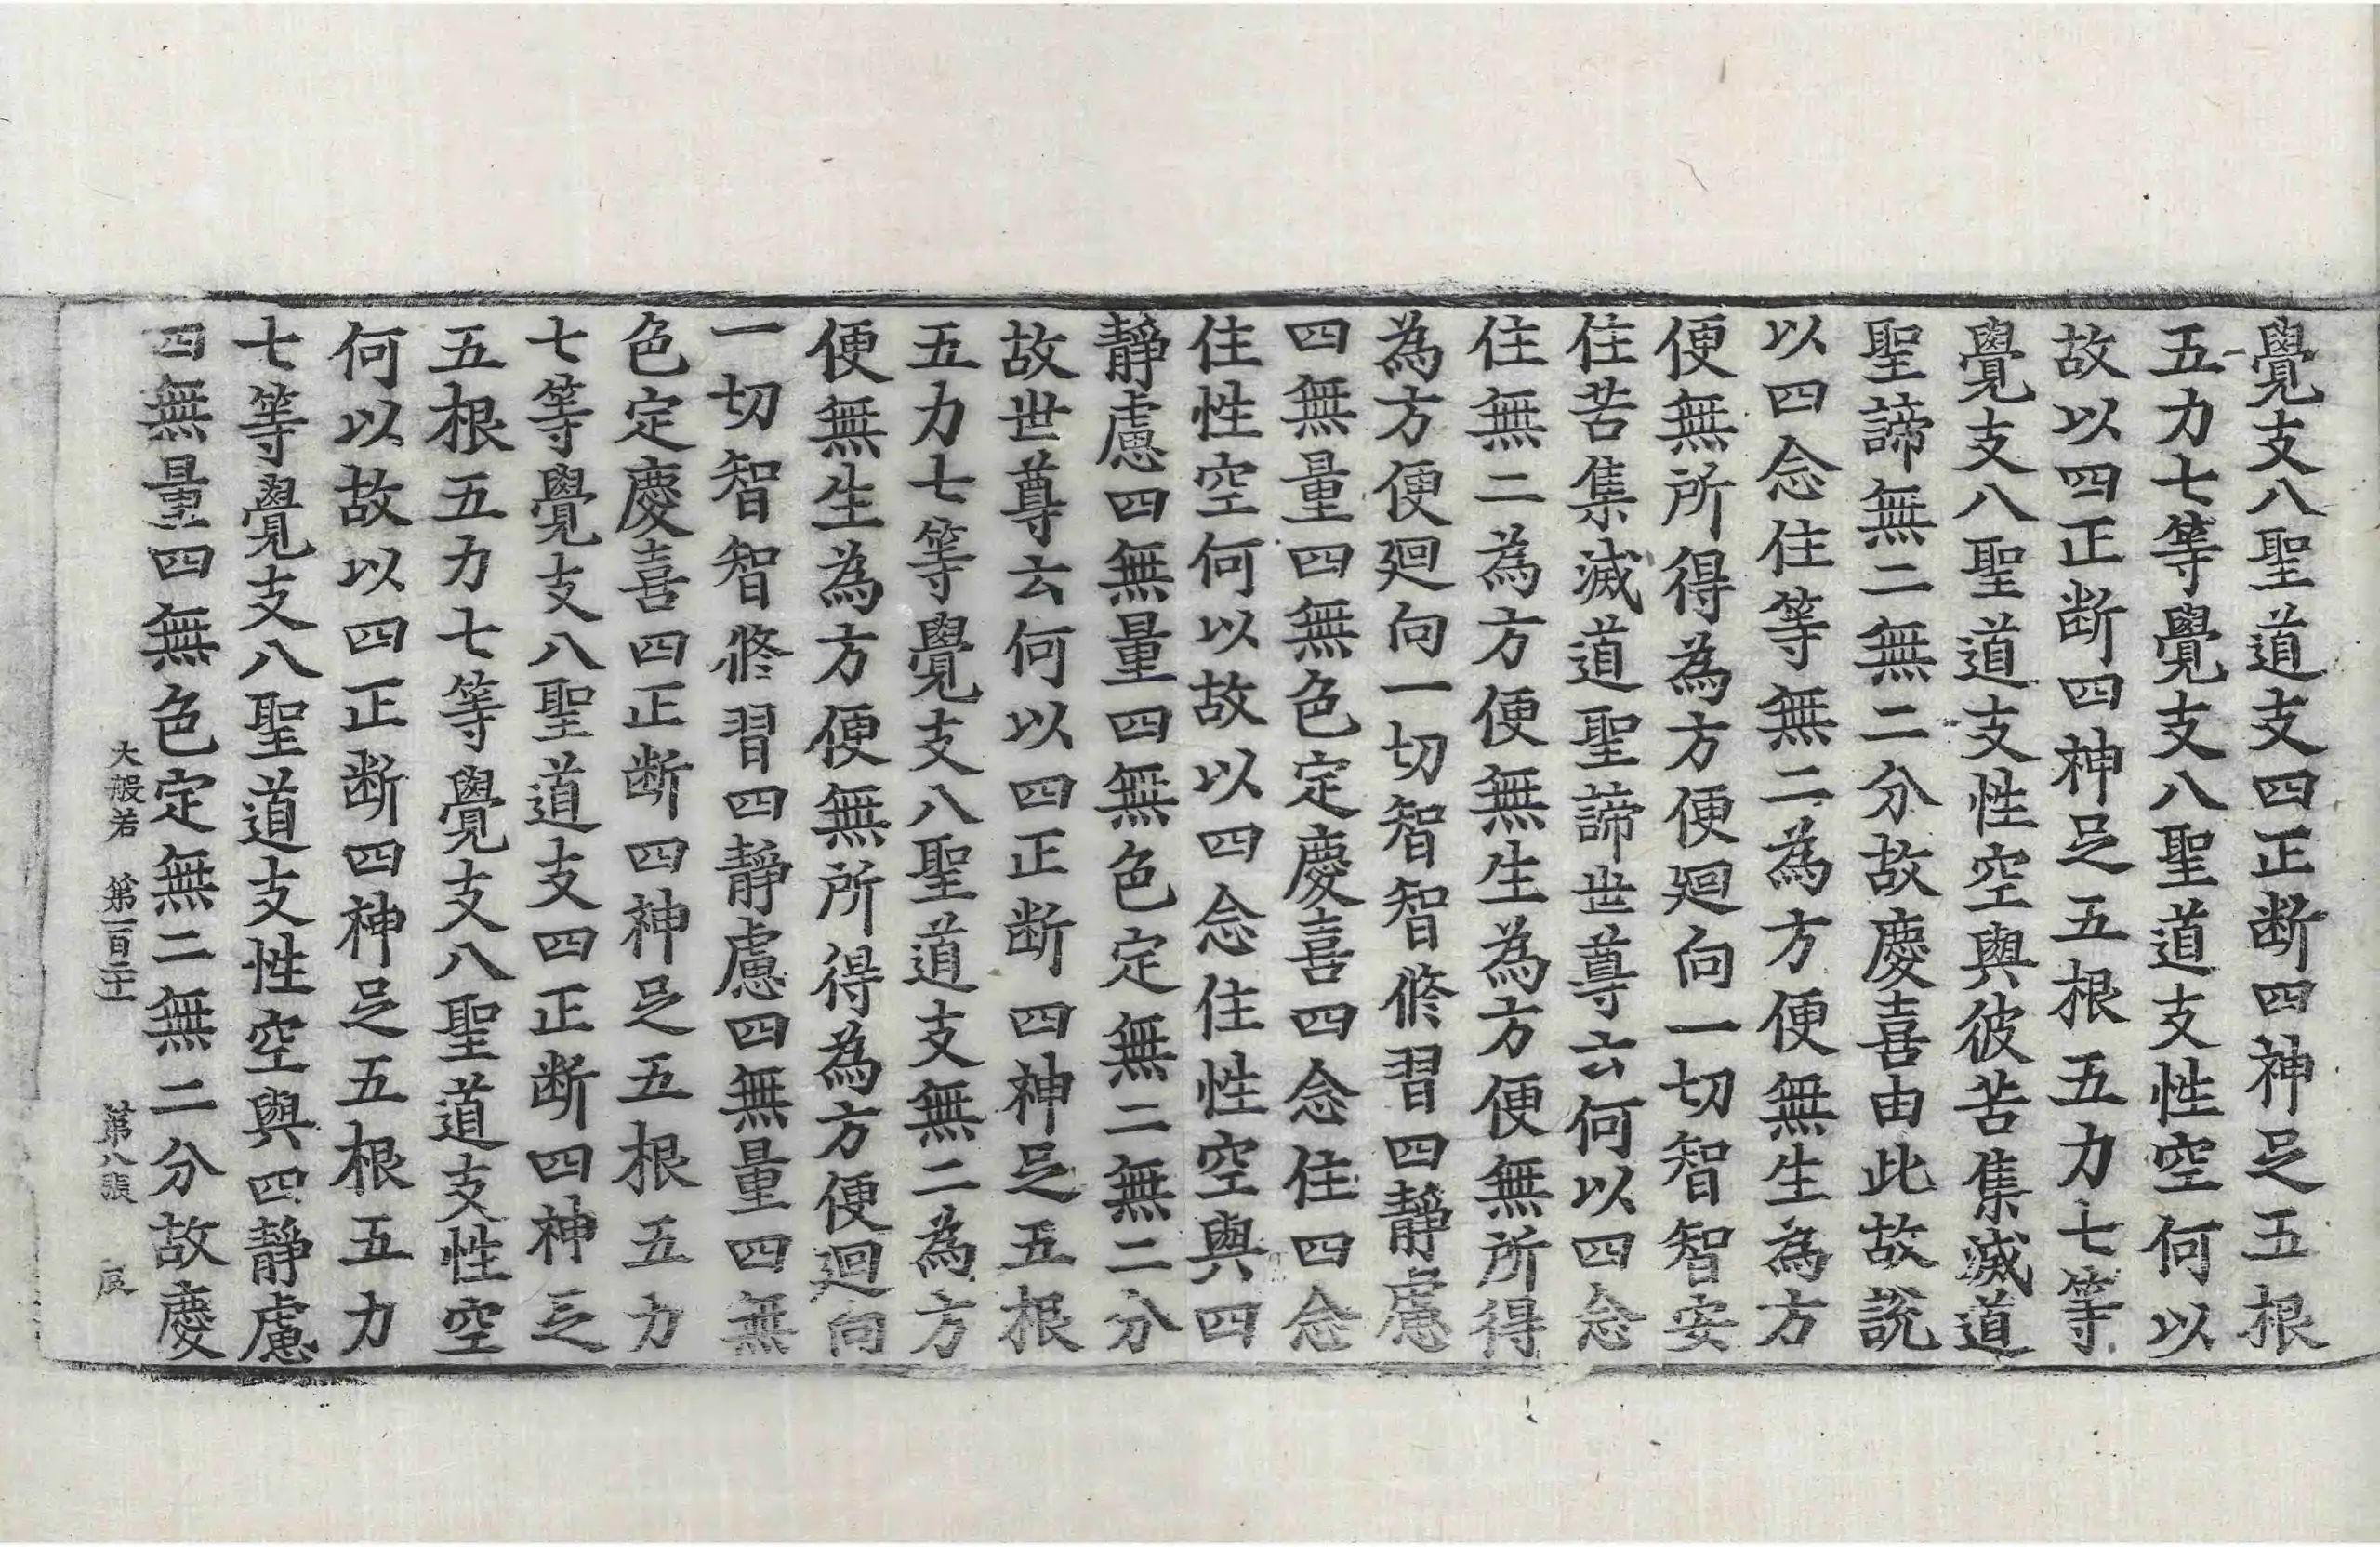 覺支八聖道支四正断四神𠯁五根
五力七等覺支八聖道支性空何以
故以四正断四神𠯁五根五力七等
覺支八聖道支性空與彼苦集滅道
聖諦無二無二分故慶喜由此故說
以四念住等無二為方便無生為方
便無所得為方便廻向一切智智安
住苦集滅道聖諦世尊云何以四念
住無二為方便無生為方便無所得
為方便廻向一切智智修習四靜慮
四無量四無色定慶喜四念住四念
住性空何以故以四念住性空與四
靜慮四無量四無色定無二無二分
故世尊云何以四正断四神𠯁五根
五力七等覺支八聖道支無二為方
便無生為方便無所得為方便廻向
一切智智修習四靜慮四無量四無
色定慶喜四正断四神𠯁五根五力
七等覺支八聖道支四正断四神𠯁
五根五力七等覺支八聖道支性空
何以故以四正断四神𠯁五根五力
七等覺支八聖道支性空與四靜慮
四無量四無色定無二無二分故慶
大般若 第一百 第八張